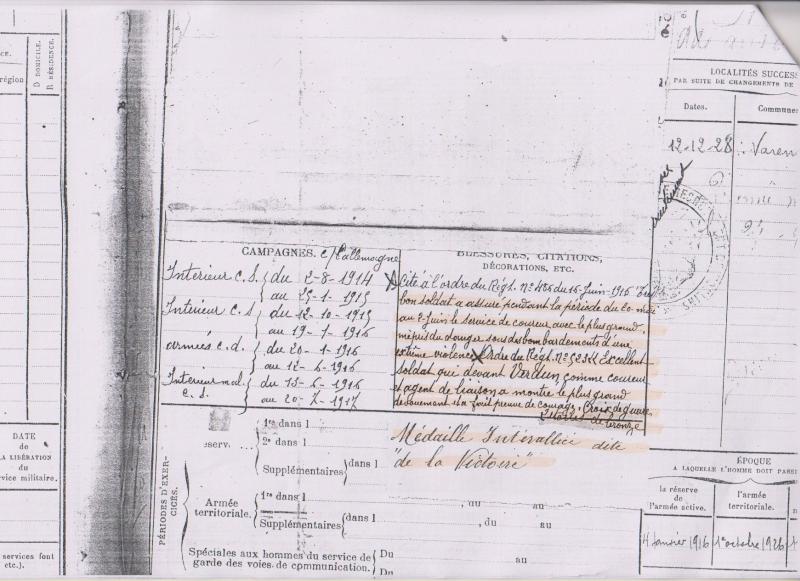 CE.
région
D DOMICILE.
R RÉSIDENCE.
LOCALITÉS SUCCESS
PAR SUITE DE CHANGEMENTS DE
Dates.
Commune
12-12-28
Varen
CAMPAGNES. c/ l'allemagne
Intérieur C.S. du 2-8-1914
au 25-1-1915
Intérieur C.S du 12-10-1915
au 19-1-1916
armées c.d. du 20-1-1916
au 12-6-1916
Interieur mal. du 13-6-1916
C.S. au 20-7-1917
BLESSURES, CITATIONS,
DÉCORATIONS, ETC.
Cité à l'ordre du Régt. N° 486 du 16 Juin 1916
bon soldat a assuré pendant la période du 20 mai
au 2 Juin le service de coureur avec le plus grand
mépris du danger sous des bombardements d'une
extrême violence. Ordre du Régt. N° Excellent
soldat qui devant Verdun, comme coureur
et agent de liaison a montré le plus grand
dévouement et a fait preuve de courage. Croix de guerre
Etoile de bronze
Médaille Interalliée dite
"de la Victoire"
PÉRIODES D'EXER-
CICES.
1re dans l
réserv.
2e dans l
Supplémentaires dans l
Armée
territoriale.
1re dans l
, du au
Supplémentaires dans l
, du au
Spéciales aux hommes du service de
garde des voies de communication.
Du au
Du
DATE
de
LA LIBÉRATION
du
rvice militaire.
services font
etc.).
ÉPOQUE
A LAQUELLE L'HOMME DOIT PASSE
la réserve
de
l'armée active.
l'armée
territoriale.
1er octobre 1926